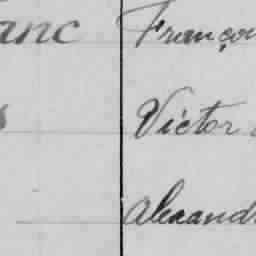 anc Françoi
Victor
Alexand